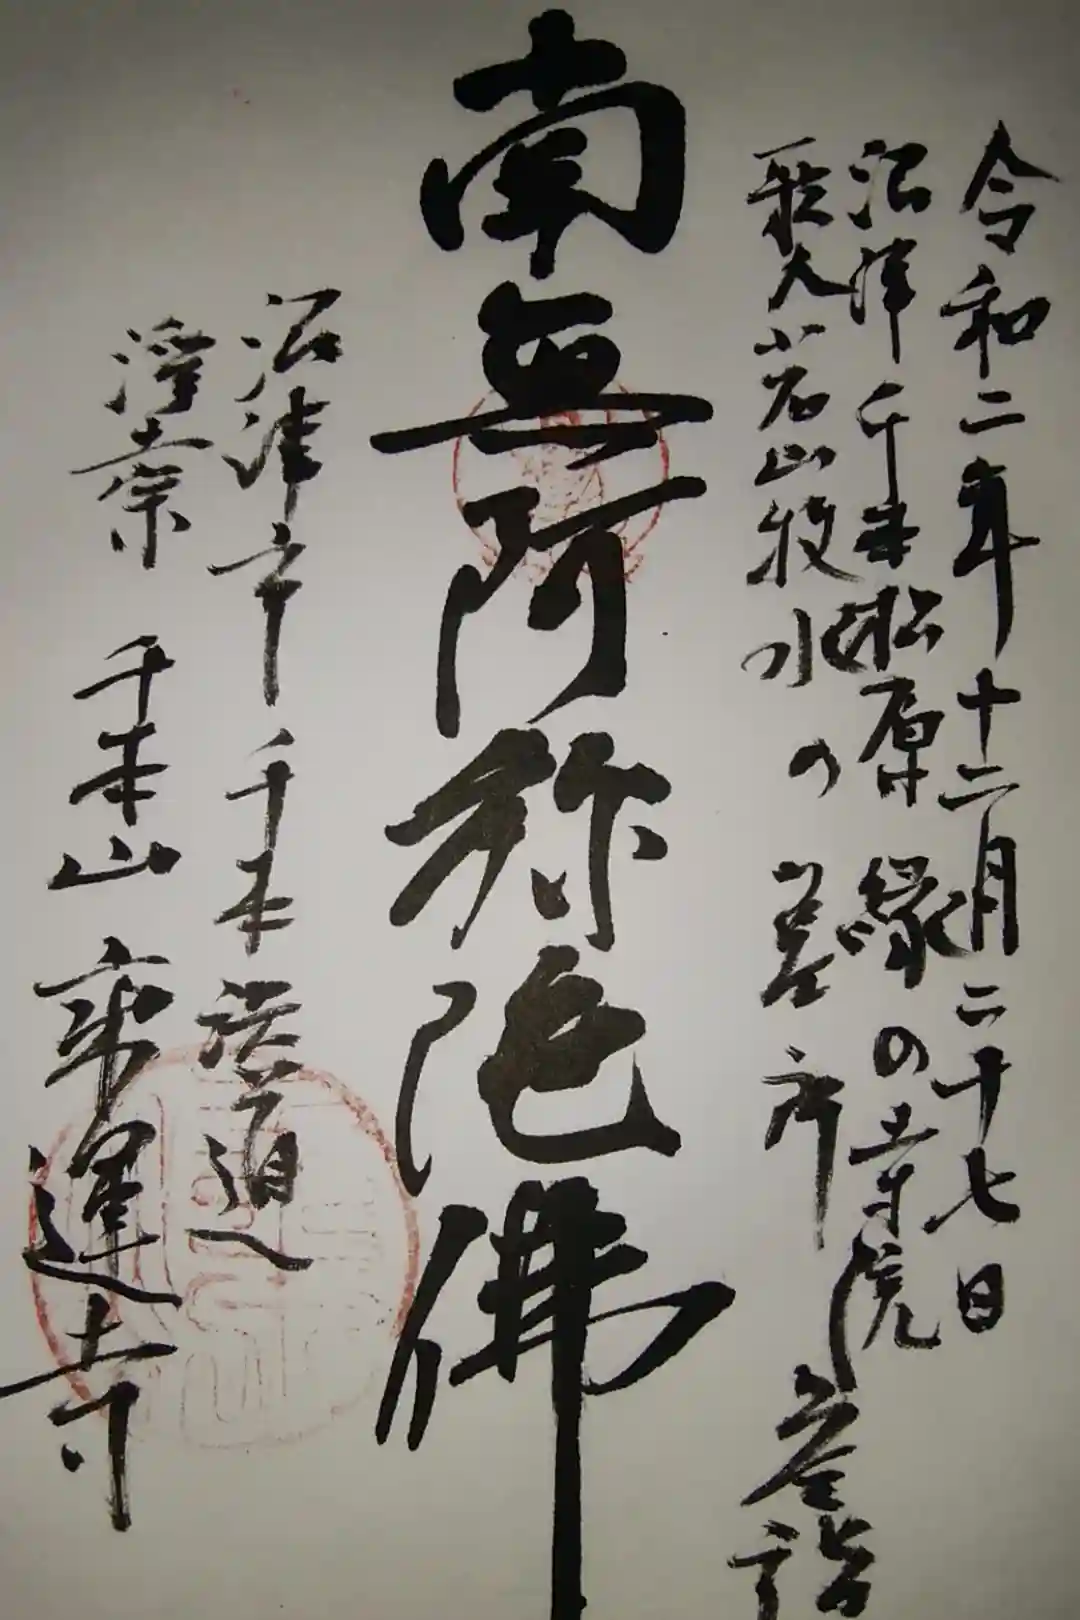 令和二年十二月二十七日
沼津千本松原 縁の寺院 参詣
歌人若山牧水の墓所
南無阿弥陀佛
沼津市 千本 道
浄土宗 千本山 乗運寺